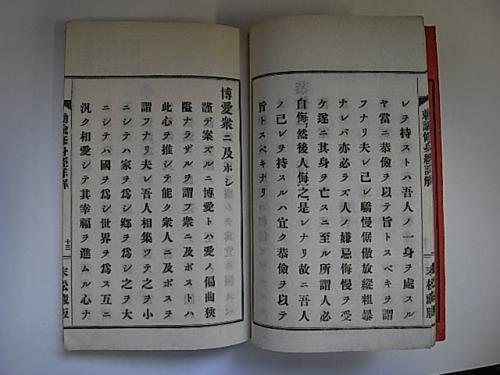 勅諭修身經詳解
レヲ持スルトハ吾人ノ一身ヲ處スル
ヤ當ニ恭儉ヲ以テ旨トスベキヲ謂
フナリ夫レ己レ驕慢倨傲放縱粗暴
ナレバ亦必ラズ人ノ嫌忌侮慢ヲ受
ケ遂ニ其身ヲ亡スニ至ル所謂人必
自侮、然後人侮之、是レナリ故ニ吾人
ノ己レヲ持スルハ宜ク恭儉ヲ以テ
旨トスベキナリ
博愛衆ニ及ホシ
謹デ案ズルニ博愛トハ愛ノ偏曲狹
隘ナラザルヲ謂フ衆ニ及ボストハ
此心ヲ推シテ能ク衆人ニ及ボスヲ
謂フナリ夫レ吾人相集ツテ之ヲ小
ニシテハ家ヲ爲シ鄕ヲ爲シ之ヲ大
ニシテハ國ヲ爲シ世界ヲ爲ス互ニ
汎ク相愛シテ其幸福ヲ進ムル心ナ
勅諭修身經詳解
十三
末松